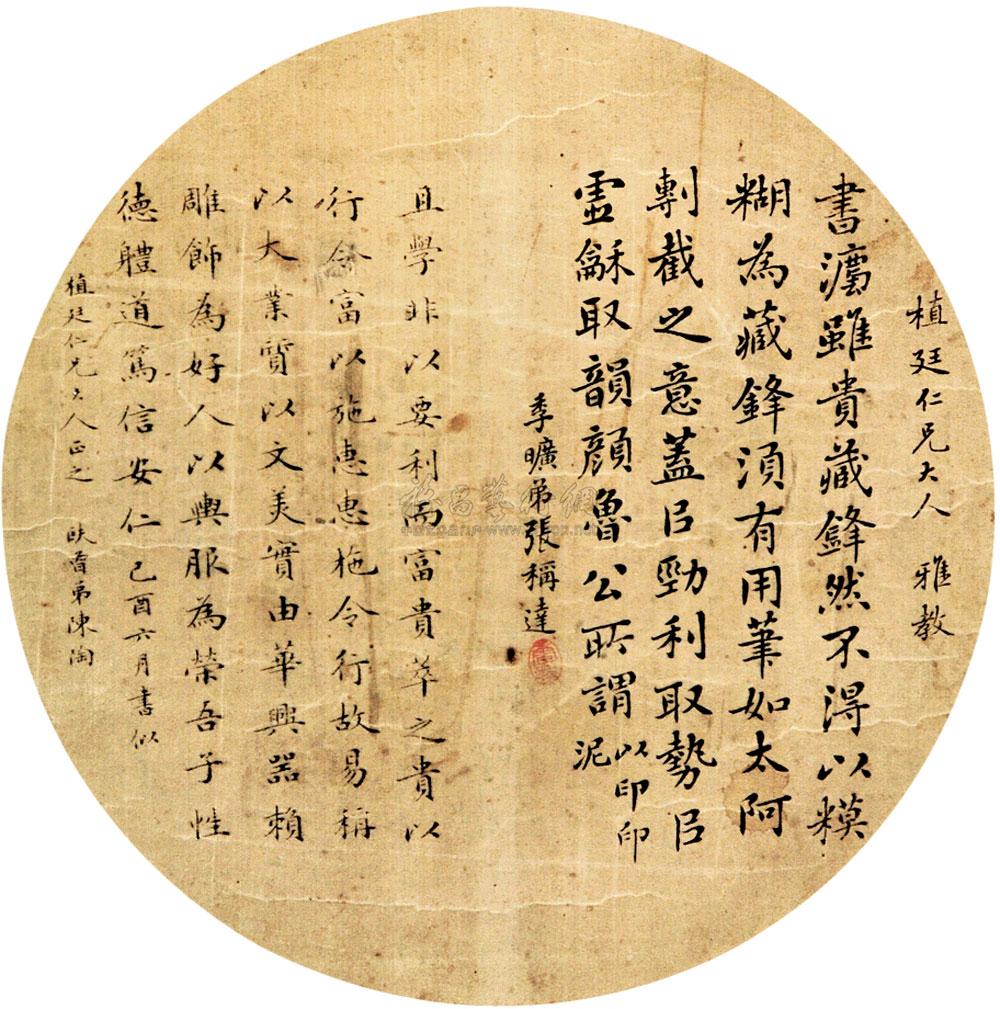 植廷仁兄大人 雅教
書灋雖貴藏鋒然不得以糢
糊為藏鋒須有用筆如太阿
剸截之意蓋㠯勁利取勢㠯
虛龢取韻顏魯公所謂以印印泥
季曠弟張稱達
且學非以要利而富貴萃之貴以
行令富以施惠惠施令行故易稱
以大業質以文美實由華興器賴
雕飾為好人以輿服為榮吾子性
德體道篤信安仁 己酉六月書似
植廷仁兄大人正之 弟陳